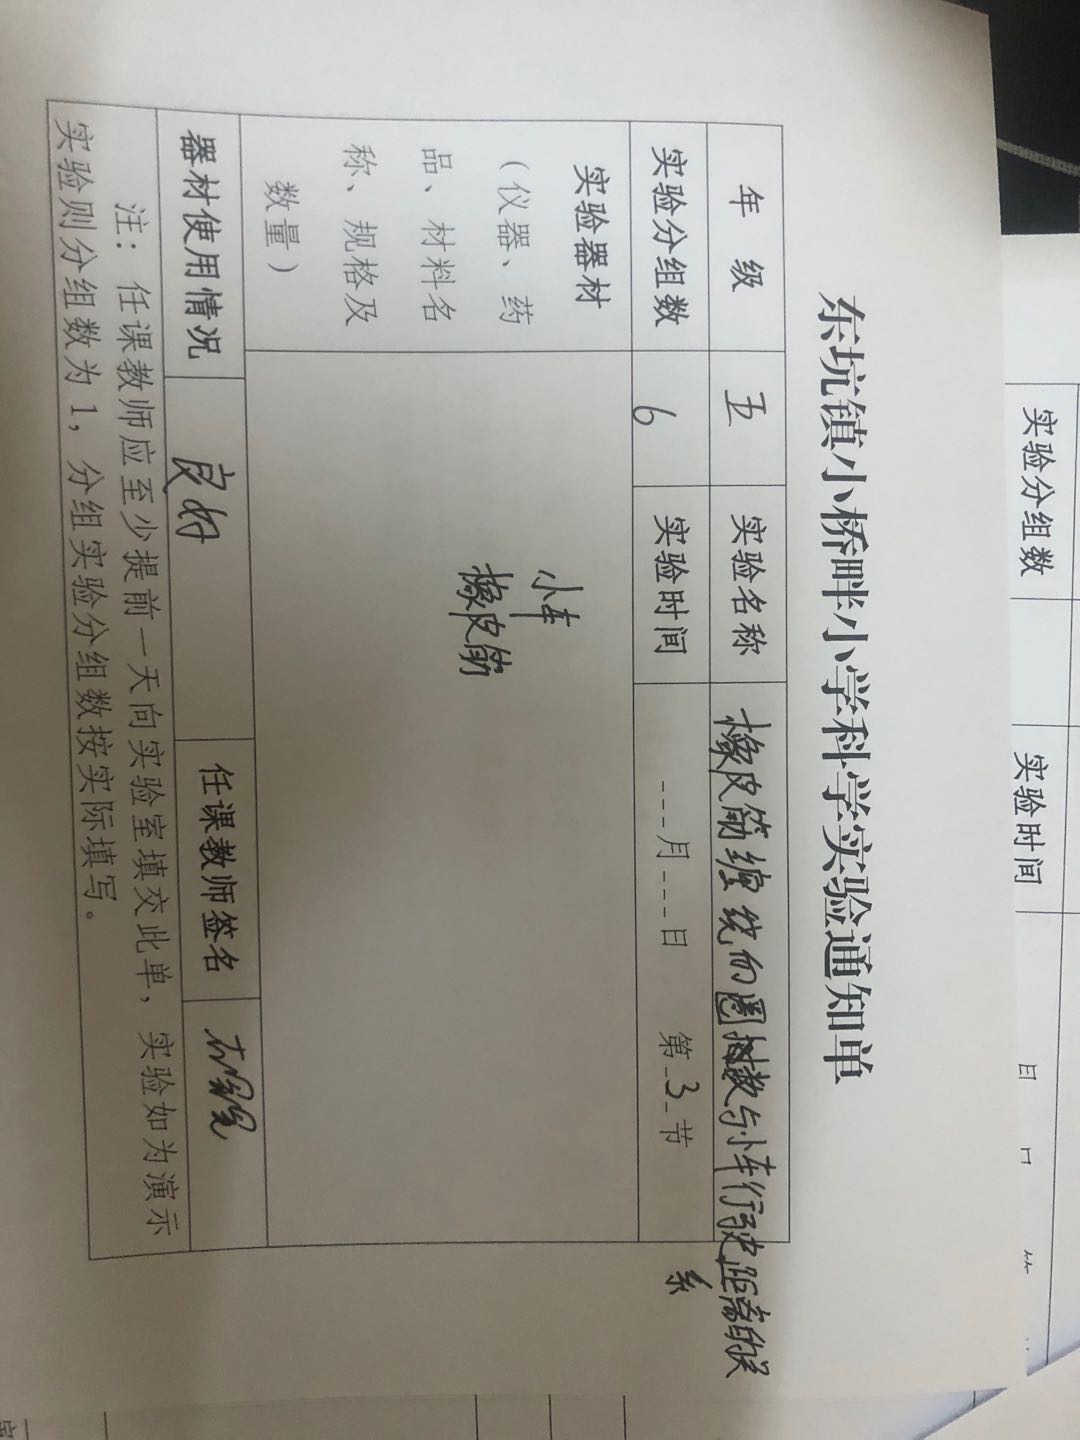 东坑镇小桥畔小学科学实验通知单
年 级 五 实验名称 橡皮筋缠绕的圈数与小车行驶距离的关
系
实验分组数 6 实验时间 月 日 第 3 节
实验器材
（仪器、药
品、材料名
称、规格及
数量）
小车
橡皮筋
器材使用情况 良好 任课教师签名
注：任课教师应至少提前一天向实验室填交此单，实验如为演示
实验则分组数为1，分组实验分组数按实际填写。
实验分组数 实验时间